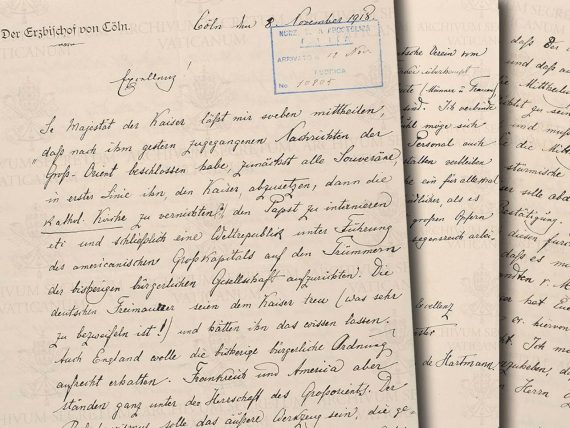 Der Erzbischof von Cöln.
Cöln den 8. November 1918
NUNZ.
ARRIVATO
No. 10905
Exzellenz!
Se Majestät der Kaiser läßt mir soeben mittheilen,
"daß nach ihm gestern zugegangenen Nachrichten der
Groß-Orient beschlossen habe, zunächst alle Souveräne,
in erster Linie ihn, den Kaiser, abzusetzen, dann die
Kathol. Kirche zu vernichten, den Papst zu internieren
etc und schließlich eine Weltrepublik unter Führung
des americanischen Großkapitals auf den Trümmern
der bisherigen bürgerlichen Gesellschaft aufzurichten. Die
deutschen Freimaurer seien dem Kaiser treu (was sehr
zu bezweifeln ist!) und hätten ihn das wissen lassen.
Auch England wolle die bisherige bürgerliche Ordnung
aufrecht erhalten. Frankreich und America aber
ständen ganz unter der Herrschaft des Großorients. Der
solle das äußere Werkzeug sein, die ge-
tsche Verein vom
(Männer u Frauen)
sind. Ich verbinde
möge sich
Personal auch
ein für allemal
als es
großen Opfern
segensreich arbei-
de Hartmann
daß der
und daß
Mittheil
zu sein
und
die Mitth
stürmische
er solle
Bestätigung.
diesen
daß es
hat Eu
hiervon
Ich
Herrn